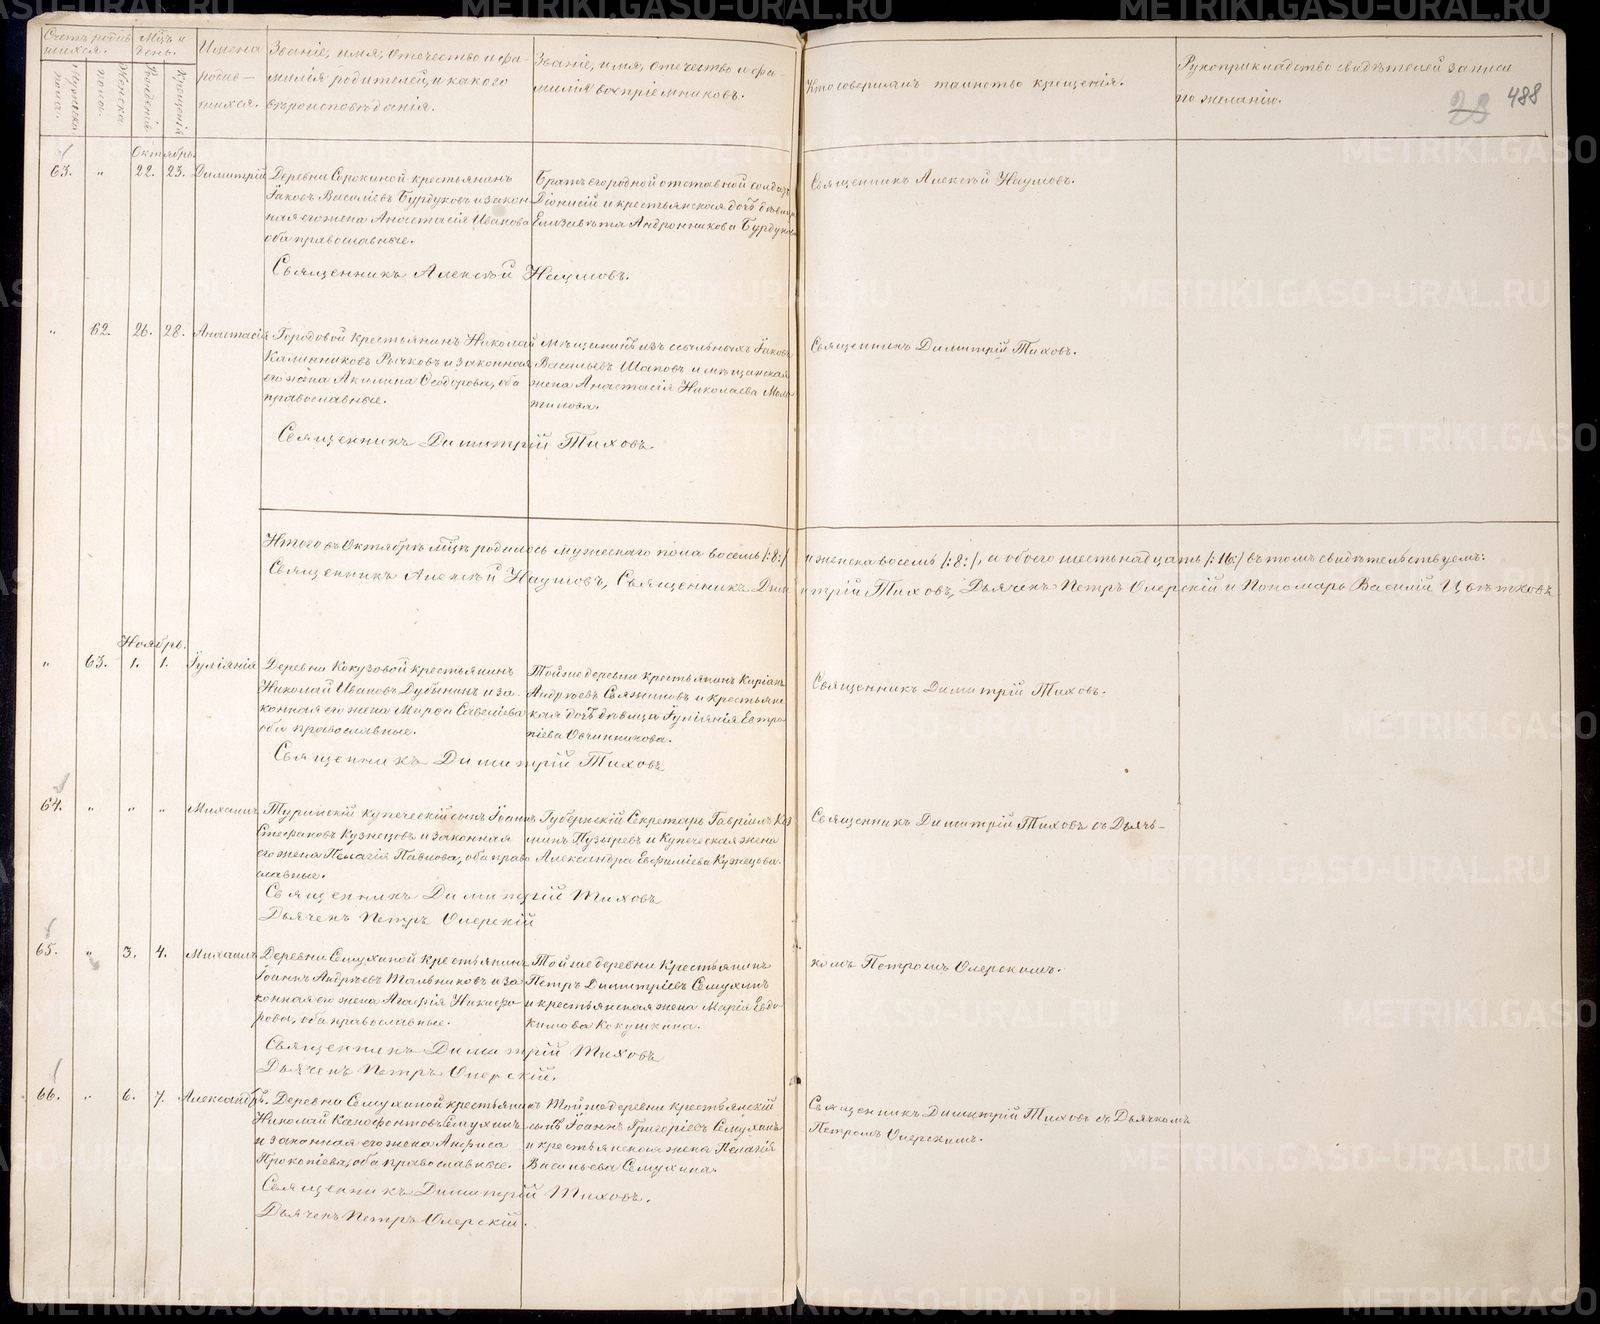 Счетъ родив-
шихся.
Мужеска
пола.
Женска
пола.
Мцъ и
день.
Рожденія
Крещенія
Имена
родив-
шихся.
Званіе, имя, отечество и фа-
милія родителей, и какого
вѣроисповѣданія.
Званіе, имя, отечество и фа-
милія воспріемниковъ.
Кто совершалъ таинство крещенія.
Рукоприкладство свидѣтелей записи
по желанію.
28 488
Октябрь.
63. " 22. 23. Димитрій
Деревни Сорокиной крестьянинъ
Іаковъ Василіевъ Бурдуковъ и закон
ная его жена Анастасія Иванова
оба православные.
Священникъ Алексѣй Наумовъ.
Братъ его родной отставной солдатъ
Діонисій и крестьянская дочь дѣвица
Елизавѣта Андронникова Бурдукова
Священникъ Алексѣй Наумовъ.
" 62. 26. 28. Анастасія
Городовой крестьянинъ Николай
Калинниковъ Рычковъ и законная
его жена Акилина Ѳеодорова, оба
православные.
Священникъ Димитрій Тиховъ.
Мѣщанинъ изъ ссыльныхъ Іаковъ
Васильевъ Шаповъ и мѣщанская
жена Анастасія Николаева
Священникъ Димитрій Тиховъ.
Итого въ Октябрѣ мцѣ родилось мужескаго пола восемь /:8:/ и женска восемь /:8:/, а обоего шестьнадцать /:16:/ въ томъ свидѣтельствуемъ:
Священникъ Алексѣй Наумовъ, Священникъ Димитрій Тиховъ, Дьячекъ Петръ Олерскій и Пономарь Василій Цвѣтковъ
Ноябрь.
" 63. 1. 1. Іуліанія
Деревни Кокузовой крестьянинъ
Николай Ивановъ Дубынинъ и за-
конная его жена Марфа Савеліева
оба православные.
Священникъ Димитрій Тиховъ
Той же деревни крестьянинъ Киріакъ
Андреевъ Свяжиновъ и крестьянс
кая дочь дѣвица Іуліанія Евтро-
піева Овчинникова.
Священникъ Димитрій Тиховъ.
64. " " " Михаилъ
Туринскій купеческій сынъ Іоаннъ
Стефановъ Кузнецовъ и законная
его жена Пелагія Павлова, оба право
славные.
Священникъ Димитрій Тиховъ
Дьячекъ Петръ Олерскій
Губернскій Секретарь Гавріилъ Коз
минъ Пузыревъ и Купеческая жена
Александра Евфиміева Кузнецова.
Священникъ Димитрій Тиховъ съ Дьячь-
65. " 3. 4. Михаилъ
Деревни Семухиной крестьянинъ
Іоаннъ Андреевъ Тальниковъ и за
конная его жена Агафія Никифо-
рова, оба православные.
Священникъ Димитрій Тиховъ
Дьячекъ Петръ Олерскій.
Той же деревни Крестьянинъ
Петръ Димитріевъ Семухинъ
и крестьянская жена Марія Евдо-
кимова Кокушкина.
комъ Петромъ Олерскимъ.
66. " 6. 7. Александръ.
Деревни Семухиной крестьянинъ
Николай Ксенофонтовъ Семухинъ
и законная его жена Анфиса
Прокопіева, оба православные.
Священникъ Димитрій Тиховъ.
Дьячекъ Петръ Олерскій.
Той же деревни крестьянскій
сынъ Іоаннъ Григоріевъ Семухинъ
и крестьянская жена Пелагія
Васильева Семухина.
Священникъ Димитрій Тиховъ съ Дьячкомъ
Петромъ Олерскимъ.
METRIKI.GASO-URAL.RU